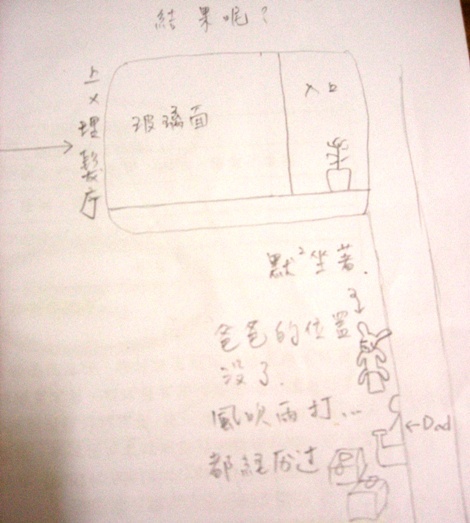 結果呢?
上×理髮庁
玻璃面
入口
默²坐著.
爸爸的位置
没了.
風吹雨打...
都経历过
←Dad